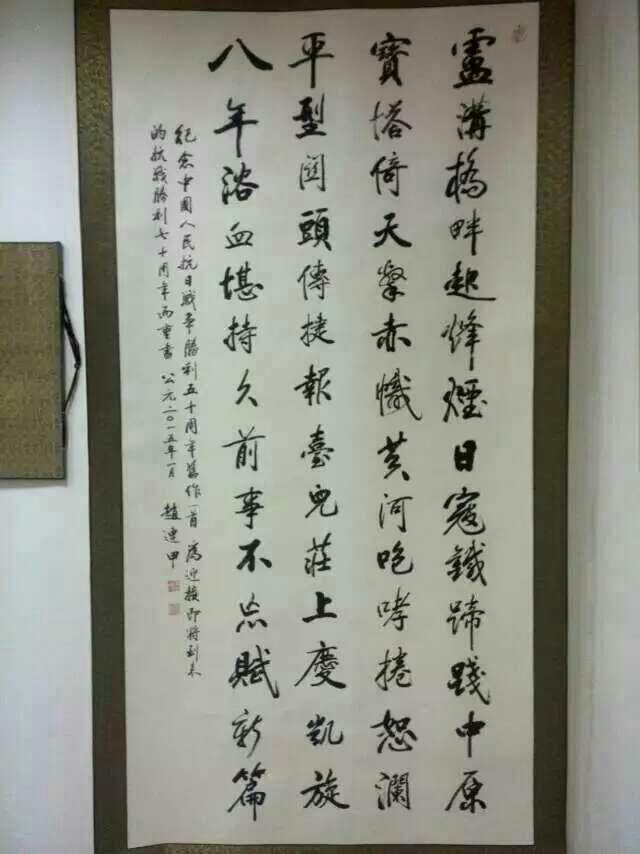 盧溝橋畔起烽煙日寇鐵蹄踐中原
寶塔倚天擎赤幟黄河咆哮捲怒瀾
平型関頭傳捷報臺兒莊上慶凱旋
八年浴血堪持久前事不忘賦新篇
紀念中國人民抗日戰争勝利五十周年舊作一首 為迎接即將到来
的抗戰勝利七十周年而重書 公元二〇一五年一月 趙連甲